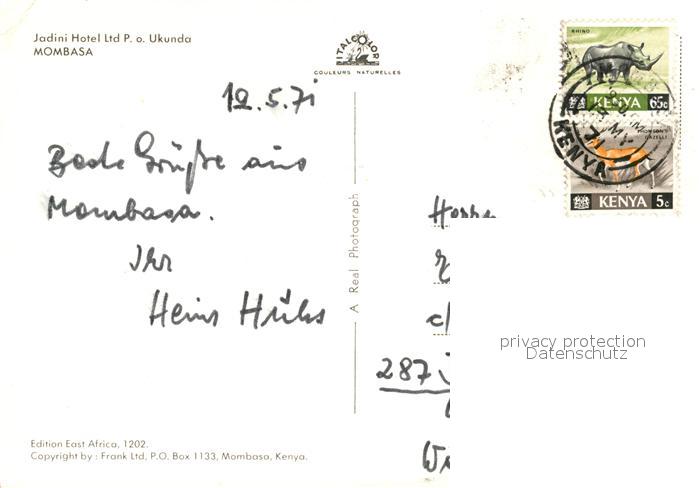 Jadini Hotel Ltd P. o. Ukunda
MOMBASA
ITALCOLOR
COULEURS NATURELLES
12.5.71
Beste Grüße aus
Mombasa.
Ihr
Heinz
A Real Photograph
RHINO
KENYA 65c
THOMSON'S
GAZELLE
KENYA 5c
KENYA
c/
287
privacy protection
Datenschutz
Edition East Africa, 1202.
Copyright by : Frank Ltd, P.O. Box 1133, Mombasa, Kenya.